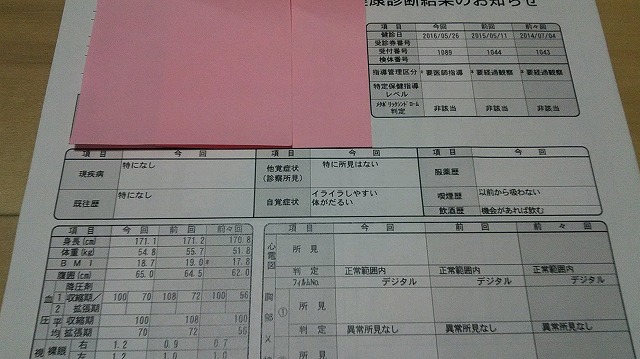 康診断結果のお知らせ
項 目 今回 前回 前々回
健診日 2016/05/26 2015/05/11 2014/07/04
受診券番号
受付番号 1089 1044 1043
検体番号
指導管理区分 *要医師指導 *要経過観察 *要経過観察
特定保健指導レベル
ﾒﾀﾎﾞﾘｯｸｼﾝﾄﾞﾛｰﾑ判定 非該当 非該当 非該当
項 目 今 回 項 目 今 回 項 目 今 回
現疾病 特になし 他覚症状(診察所見) 特に所見はない 服薬歴
既往歴 特になし 自覚症状 イライラしやすい 喫煙歴 以前から吸わない
体がだるい 飲酒歴 機会があれば飲む
項 目 今 回 前 回 前々回
身長(cm) 171.1 171.2 170.8
体重(kg) 54.8 55.7 51.8
B M I 18.7 19.0 * 17.8
腹囲(cm) 65.0 64.5 62.0
降圧剤
血圧 1 収縮期/ 100 70 108 72 100 56
2 拡張期
平均 収縮期 100 108 100
拡張期 70 72 56
視 裸眼 右 1.2 0.9 0.7
左 1.2 1.0 1.0
項 目 今 回 前 回 前 々 回
心電図 所 見
判 定 正常範囲内 正常範囲内 正常範囲内
フィルムNo. デジタル デジタル デジタル
胸部X ① 所 見
判 定 異常所見なし 異常所見なし 異常所見なし
② 所 見